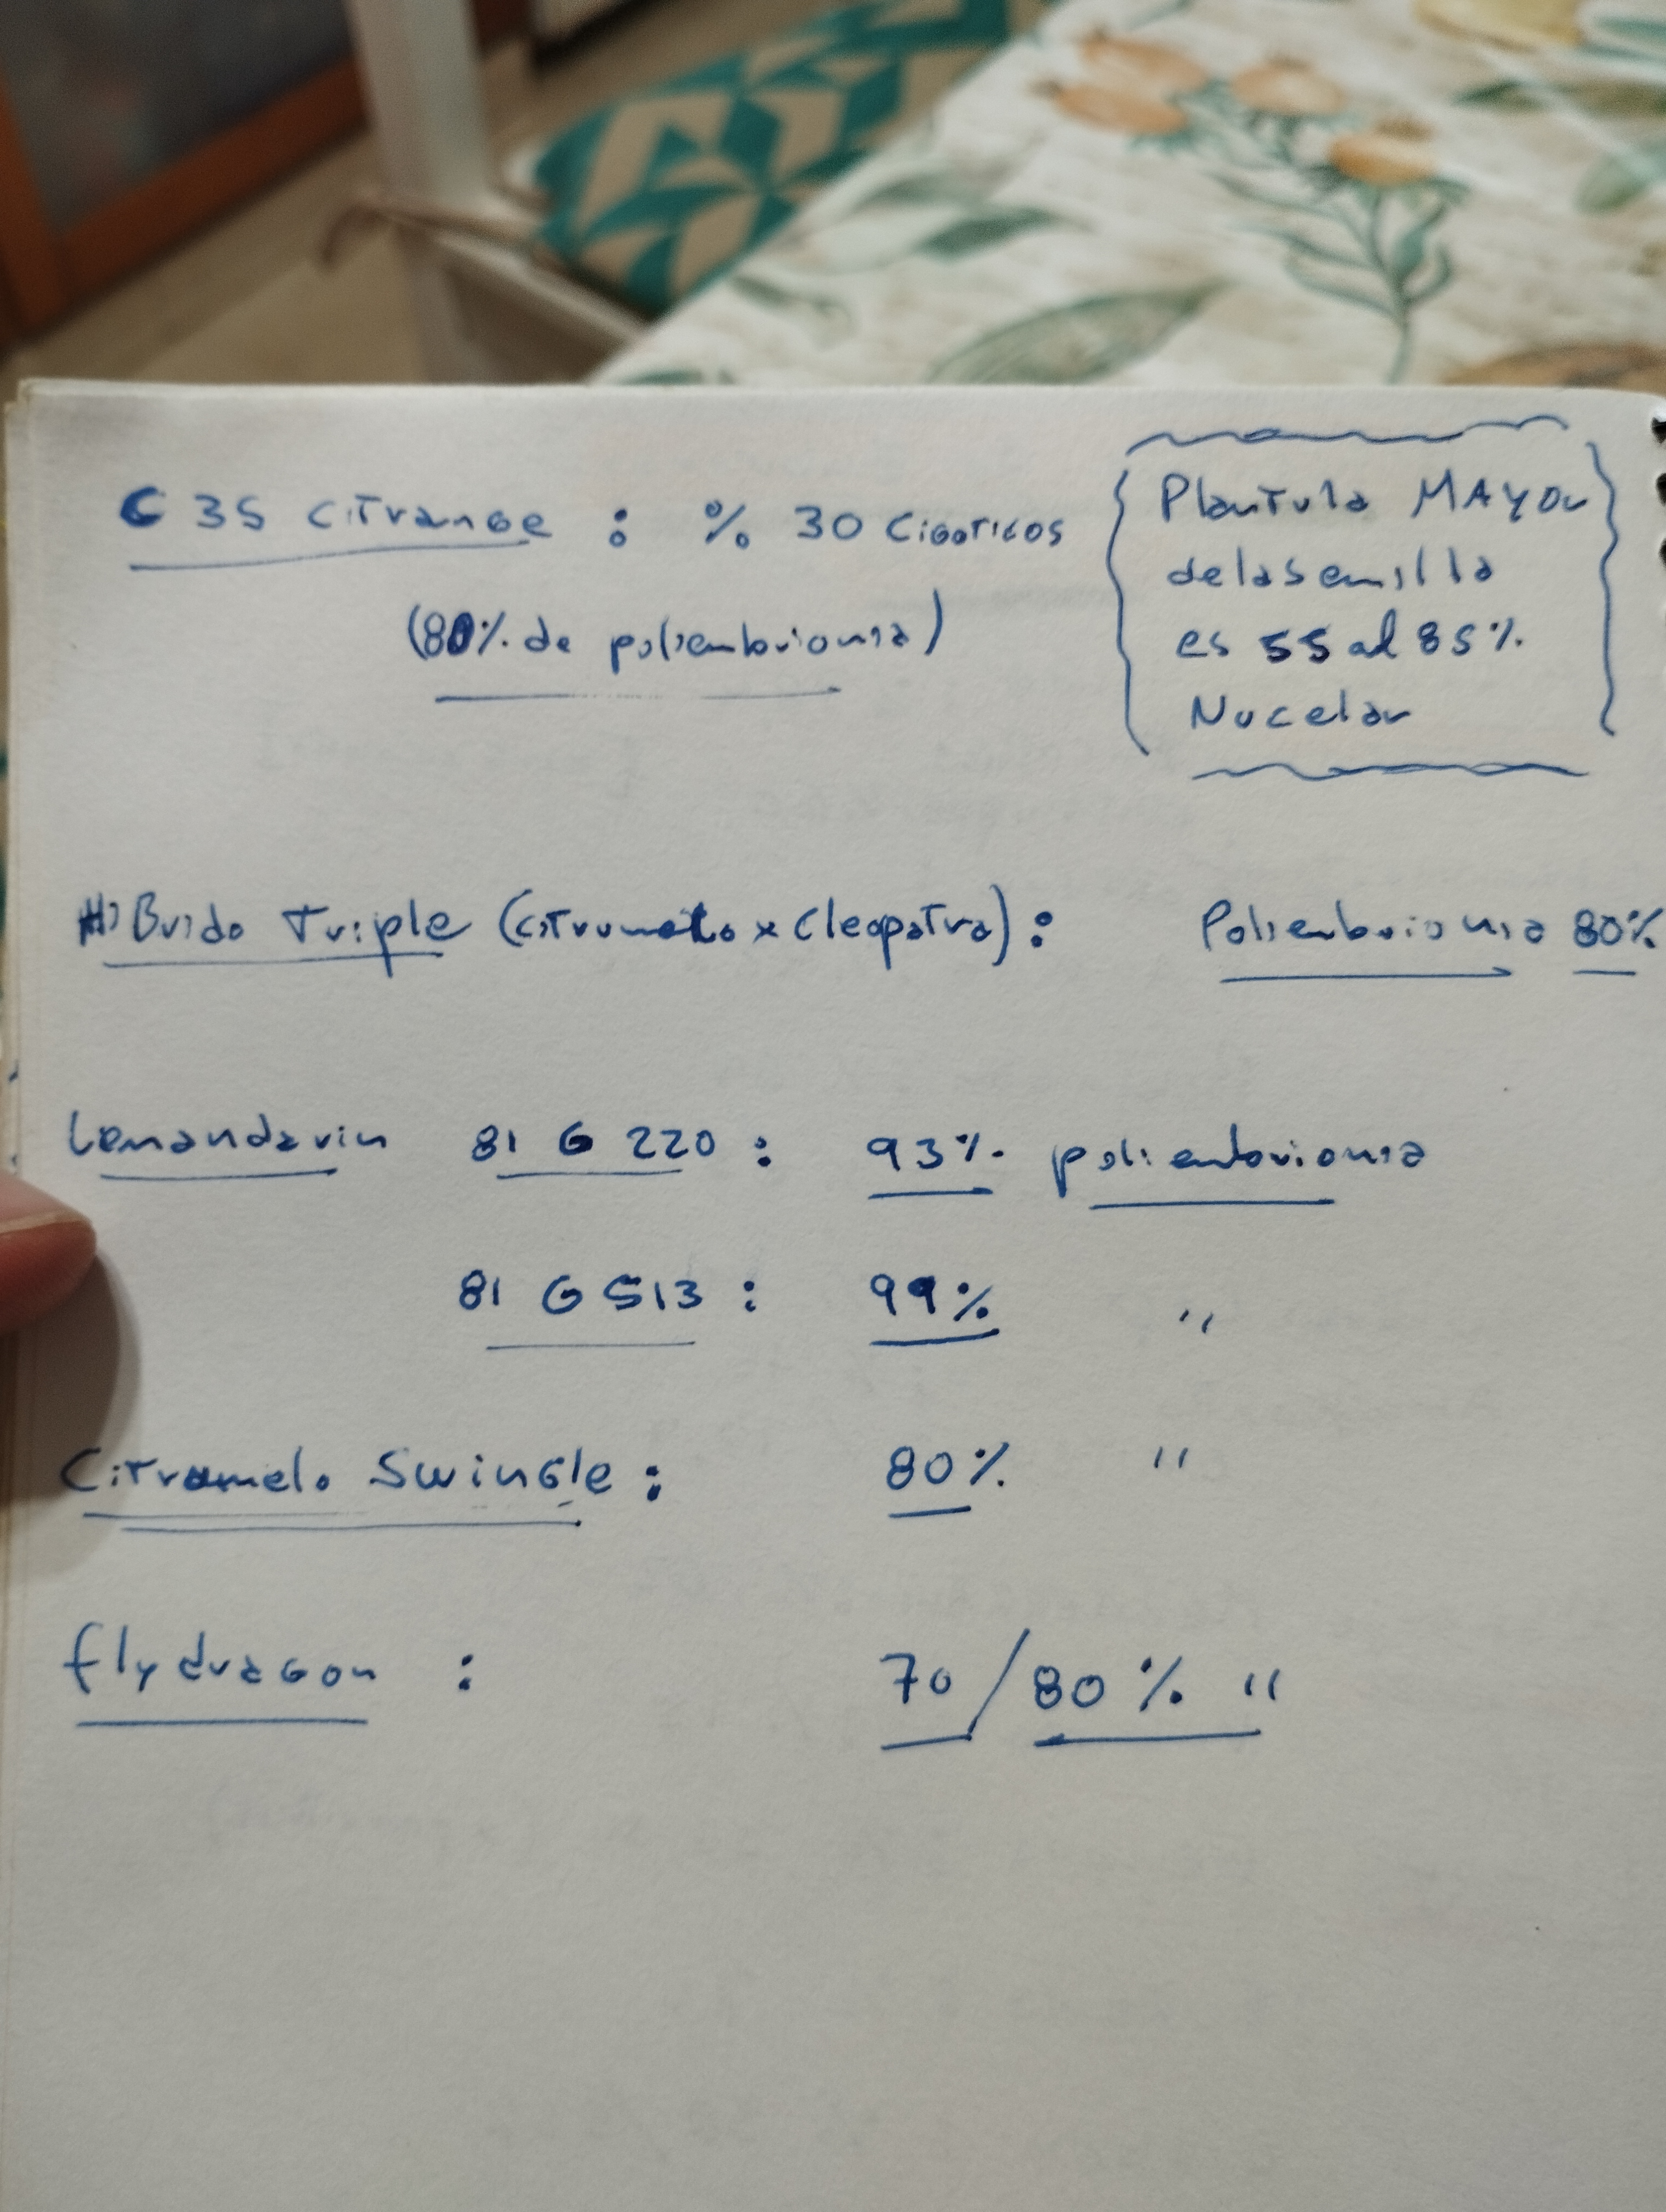 C35 Citrange : % 30 Cigoticos
(80% de poliembrionia)
Plantula MAyor
de la semilla
es 55 al 85%
Nucelar
HiBrido Triple (citrumelo x Cleopatra) : Poliembrionia 80%
Lemandarin 81 G 220 : 93% poliembrionia
81 G 513 : 99% "
Citrumelo Swingle : 80% "
flydragon : 70/80% "